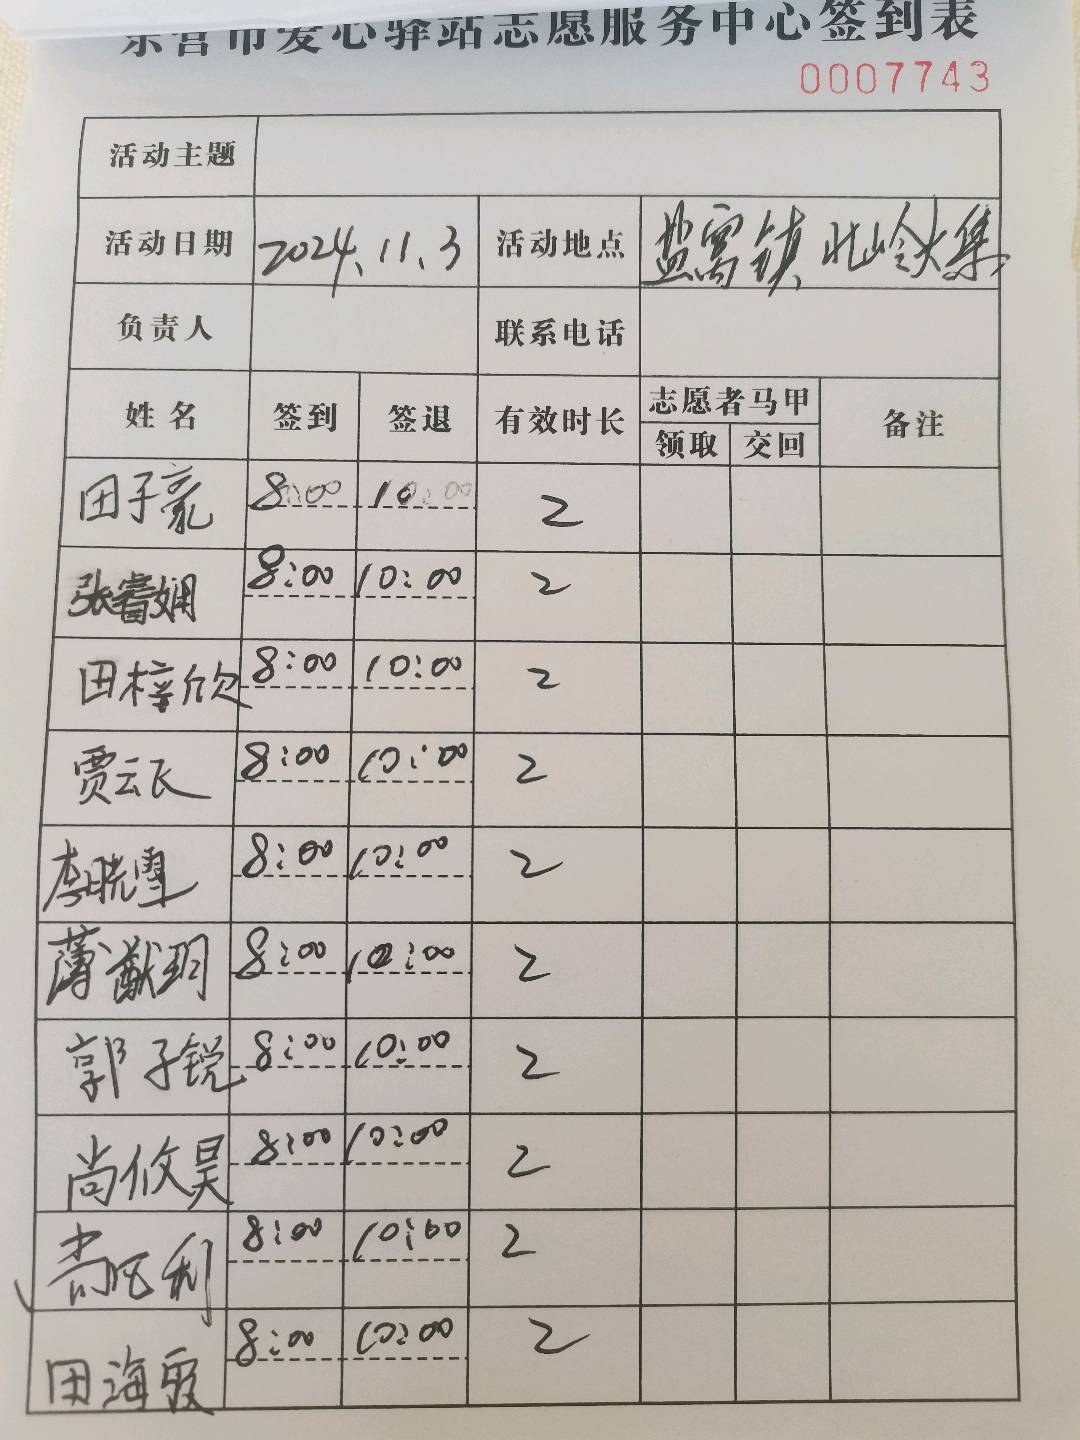 东营市爱心驿站志愿服务中心签到表
0007743
活动主题
活动日期 2024.11.3 活动地点 盐窝镇北岭大集
负责人 联系电话
姓名 签到 签退 有效时长 志愿者马甲 备注
领取 交回
田子豪 8:00 10:00 2
张睿娴 8:00 10:00 2
田梓欣 8:00 10:00 2
贾云飞 8:00 10:00 2
李晓雪 8:00 10:00 2
薄猷玥 8:00 10:00 2
郭子锐 8:00 10:00 2
尚攸昊 8:00 10:00 2
利 8:00 10:00 2
田海霞 8:00 10:00 2